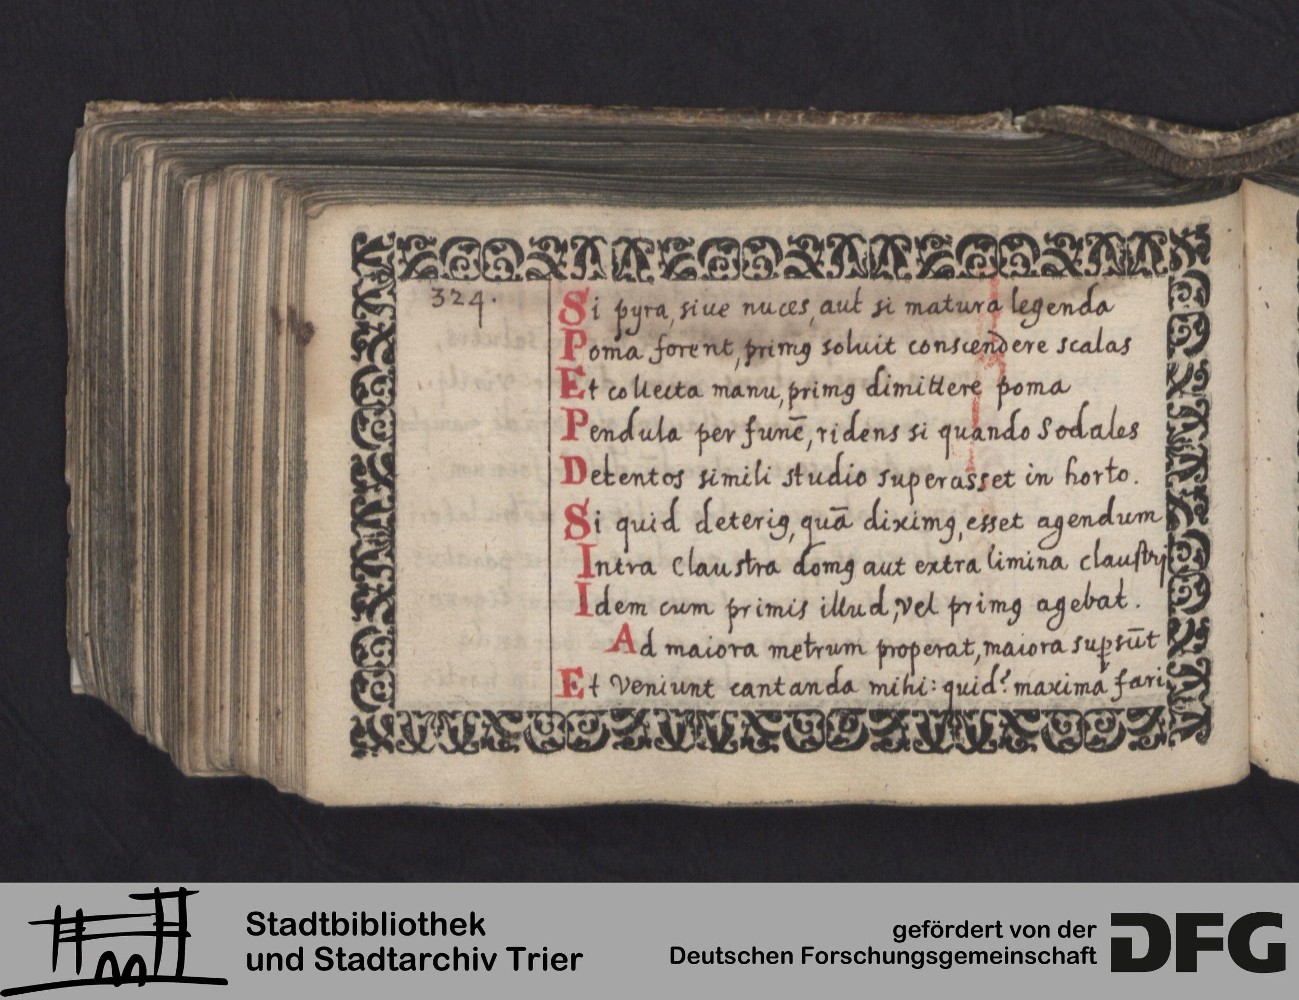 324.
Si pyra, siue nuces, aut si matura legenda
Poma forent, primꝯ soluit conscendere scalas
Et collecta manu, primꝯ dimittere poma
Pendula per funē, ridens si quando Sodales
Detentos simili studio superasset in horto.
Si quid deteriꝯ, quā diximꝯ, esset agendum
Intra Claustra domꝯ aut extra limina claustri
Idem cum primis illud, vel primꝯ agebat.
Ad maiora metrum properat, maiora supsūt
Et Veniunt cantanda mihi: quid? maxima fari
Stadtbibliothek
und Stadtarchiv Trier
gefördert von der
Deutschen Forschungsgemeinschaft
DFG